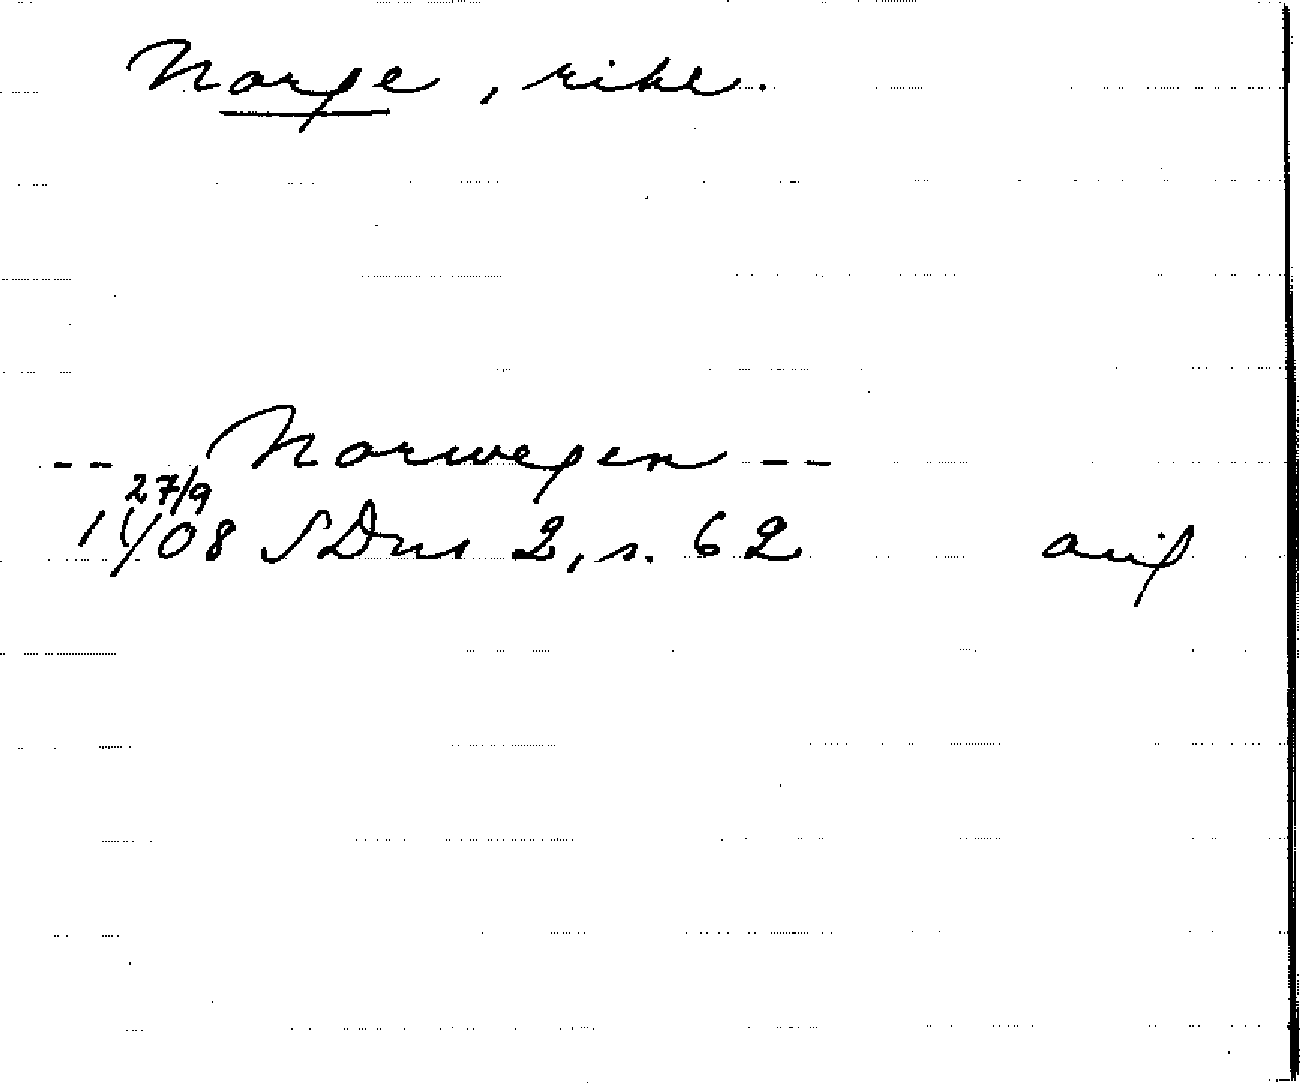 Norge, rike.
-- Norwegen --
27/9
1408 SDns 2, s. 62 orig